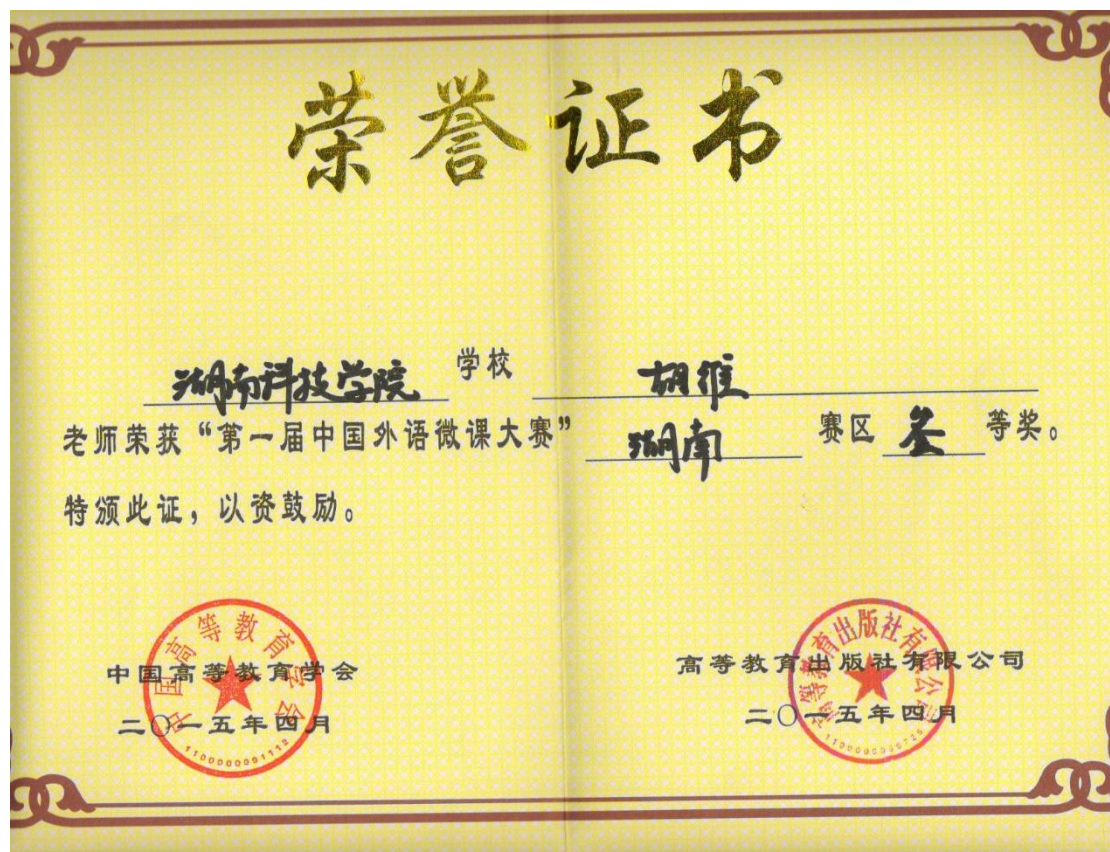 荣誉证书
湖南科技学院 学校 胡维
老师荣获“第一届中国外语微课大赛” 湖南 赛区 叁 等奖。
特颁此证，以资鼓励。
中国高等教育学会
二〇一五年四月
中国高等教育学会
1100000091112
高等教育出版社有限公司
二〇一五年四月
高等教育出版社有限公司